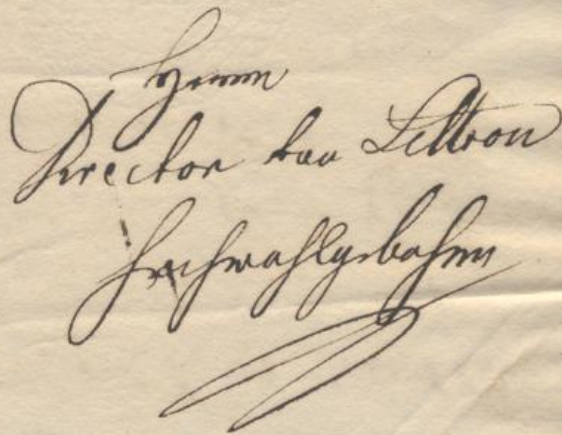 Herrn
Director von Littrow
Hochwohlgebohren